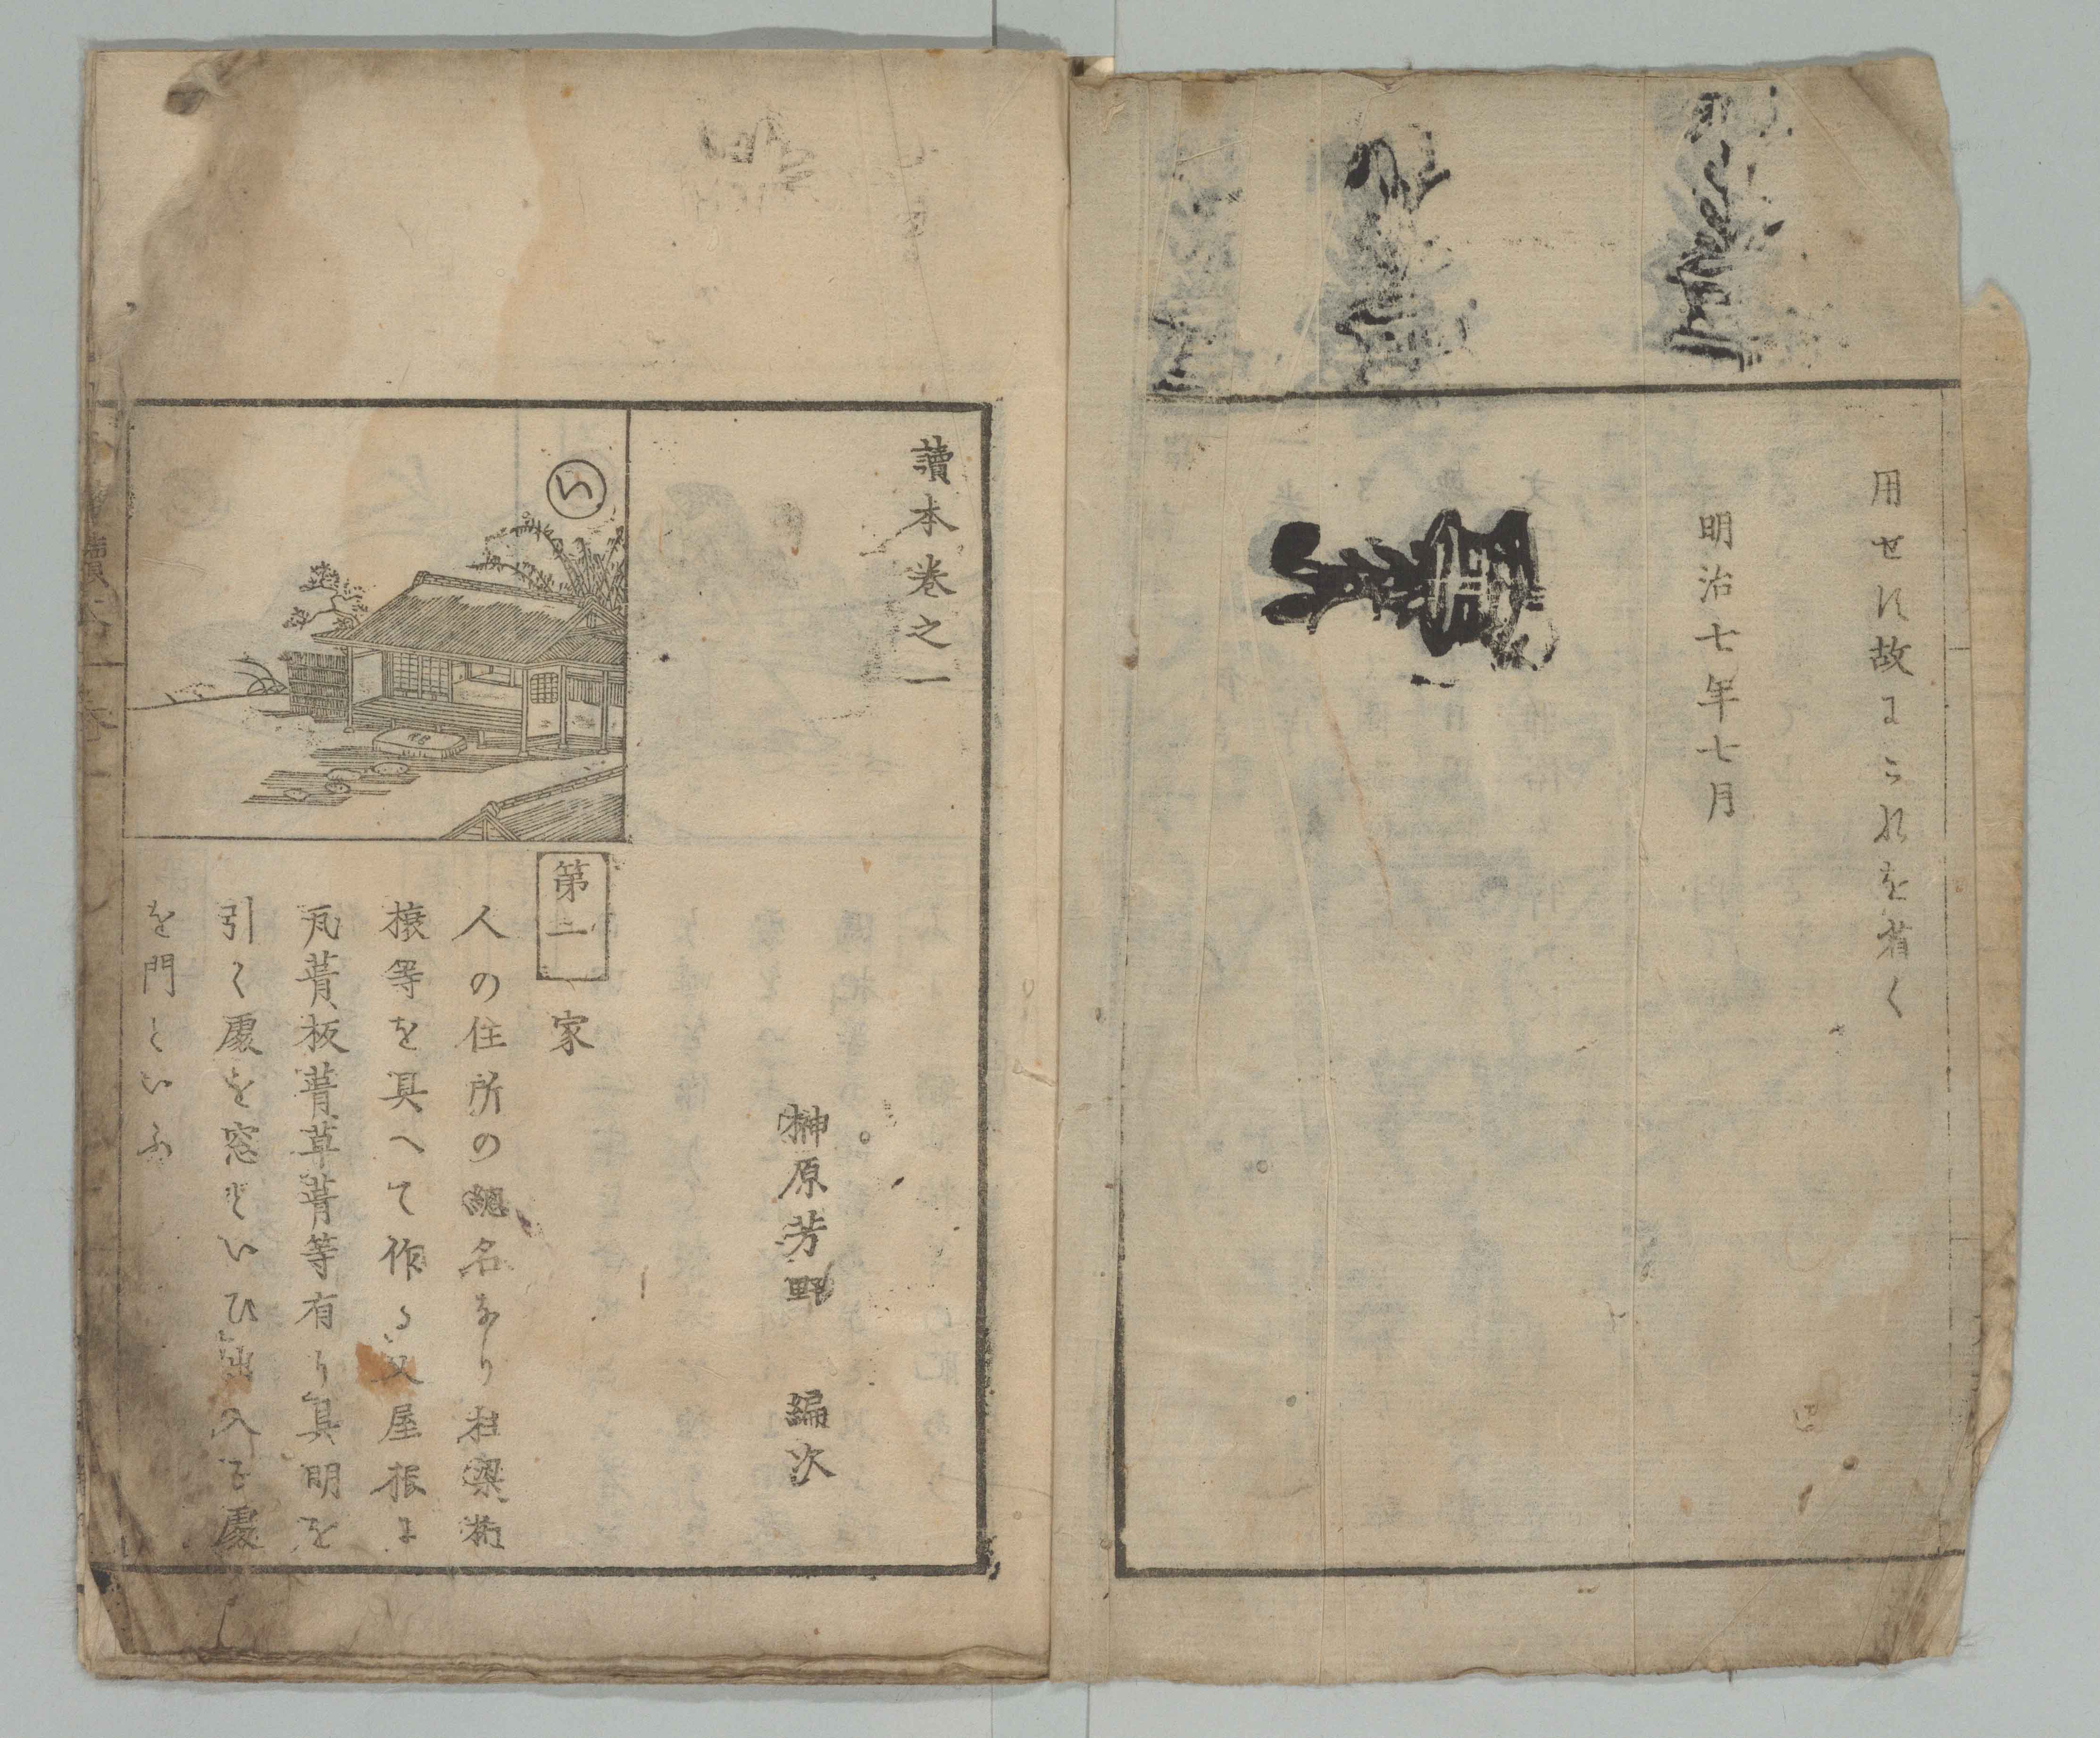 用せす故にこれを省く
明治七年七月
讀本巻之一
榊原芳野 編次
い
第一 家
人の住所の總名なり柱梁桁
榱等を具へて作る又屋根に
瓦葺板葺草葺等有り其明を
引く處を窓といひ出入る處
を門といふ